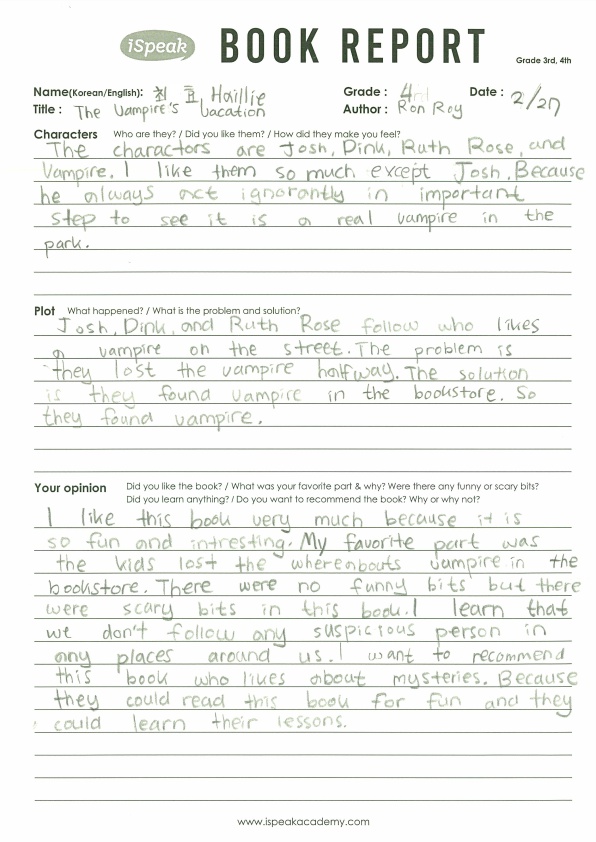 iSpeak BOOK REPORT
Grade 3rd, 4th
Name(Korean/English): 최 효 Haillie Grade : 4 Date : 2/27
Title : The Vampire's vacation Author : Ron Roy
Characters Who are they? / Did you like them? / How did they make you feel?
The charactors are Josh, Dink, Ruth Rose, and
Vampire. I like them so much except Josh. Because
he always act ignorantly in important
step to see it is a real vampire in the
park.
Plot What happened? / What is the problem and solution?
Josh, Dink, and Ruth Rose follow who likes
a vampire on the street. The problem is
they lost the vampire halfway. The solution
is they found vampire in the bookstore. So
they found vampire.
Your opinion Did you like the book? / What was your favorite part & why? Were there any funny or scary bits?
Did you learn anything? / Do you want to recommend the book? Why or why not?
I like this book very much because it is
so fun and intresting. My favorite part was
the kids lost the whereabouts vampire in the
bookstore. There were no funny bits but there
were scary bits in this book. I learn that
we don't follow any suspicious person in
any places around us. I want to recommend
this book who likes about mysteries. Because
they could read this book for fun and they
could learn their lessons.
www.ispeakacademy.com